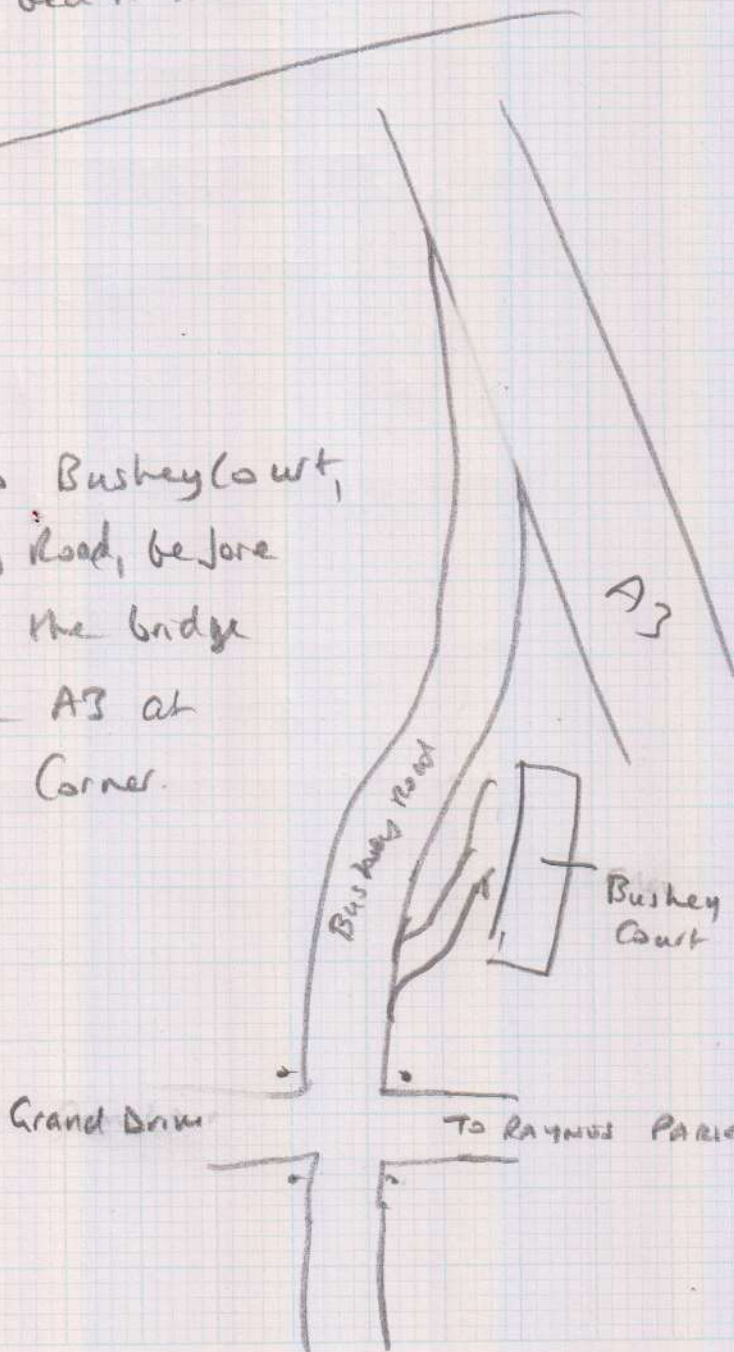 Bushey Court,
Road, before
the bridge
A3 at
Corner.
A3
Bushey Road
Bushey
Court
Grand Drive
TO RAYNES PARK